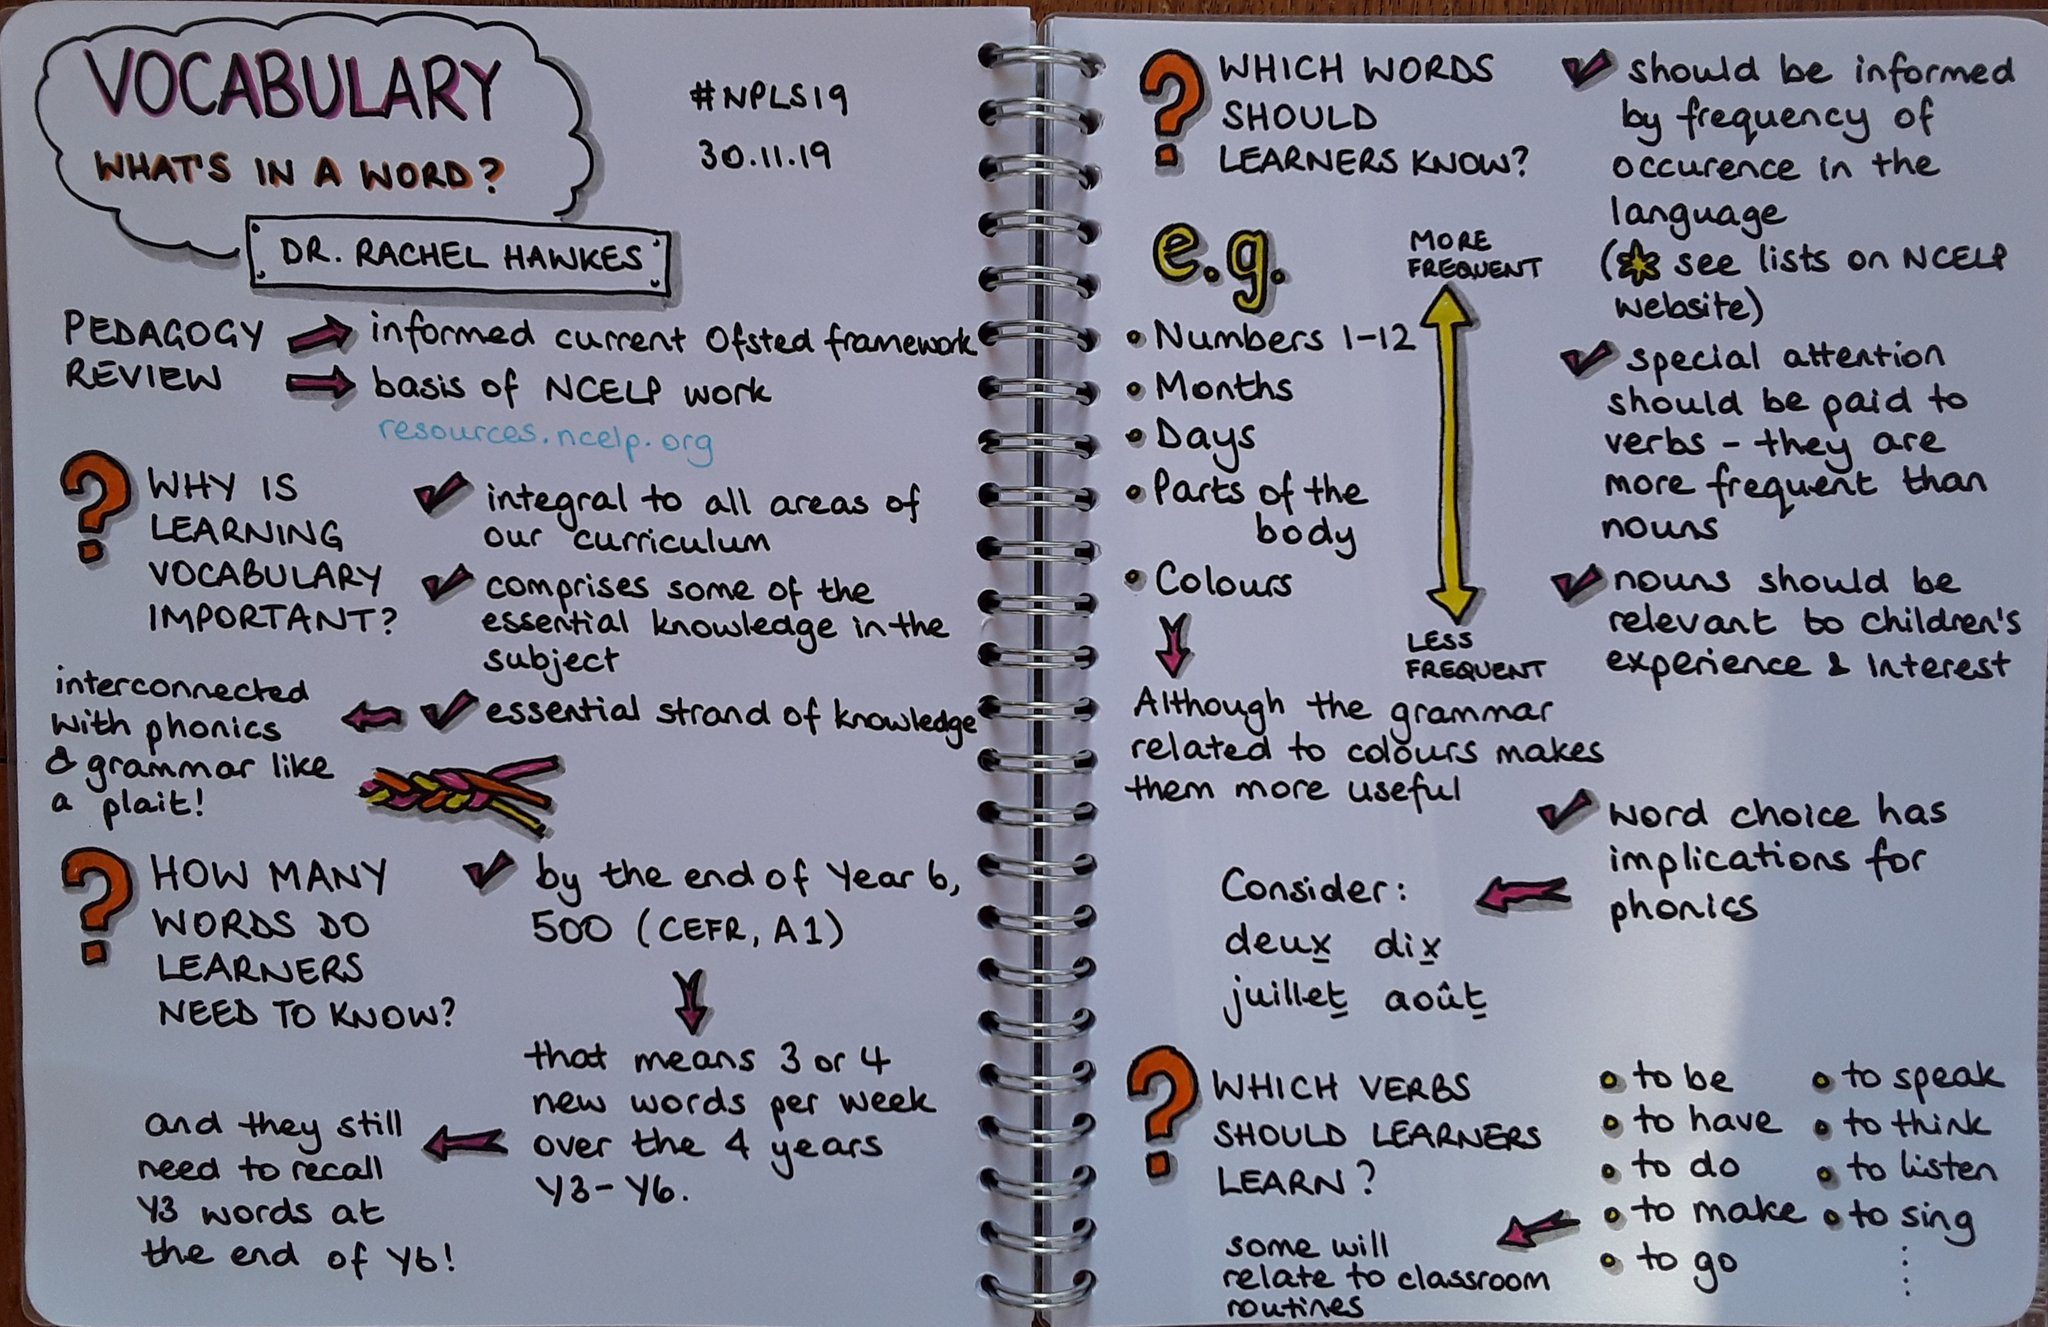 VOCABULARY
WHAT'S IN A WORD?
DR. RACHEL HAWKES
#NPLS19
30.11.19
PEDAGOGY
REVIEW
informed current Ofsted framework
basis of NCELP work
resources.ncelp.org
WHY IS
LEARNING
VOCABULARY
IMPORTANT?
integral to all areas of
our curriculum
comprises some of the
essential knowledge in the
subject
essential strand of knowledge
interconnected
with phonics
& grammar like
a plait!
HOW MANY
WORDS DO
LEARNERS
NEED TO KNOW?
by the end of Year 6,
500 (CEFR, A1)
that means 3 or 4
new words per week
over the 4 years
Y3-Y6.
and they still
need to recall
Y3 words at
the end of Y6!
WHICH WORDS
SHOULD
LEARNERS KNOW?
should be informed
by frequency of
occurence in the
language
(see lists on NCELP
website)
special attention
should be paid to
verbs - they are
more frequent than
nouns
nouns should be
relevant to children's
experience & interest
e.g.
• Numbers 1-12
• Months
• Days
• Parts of the
body
• Colours
MORE
FREQUENT
LESS
FREQUENT
Although the grammar
related to colours makes
them more useful
word choice has
implications for
phonics
Consider:
deux dix
juillet août
WHICH VERBS
SHOULD LEARNERS
LEARN?
• to be
• to have
• to do
• to make
• to go
• to speak
• to think
• to listen
• to sing
some will
relate to classroom
routines